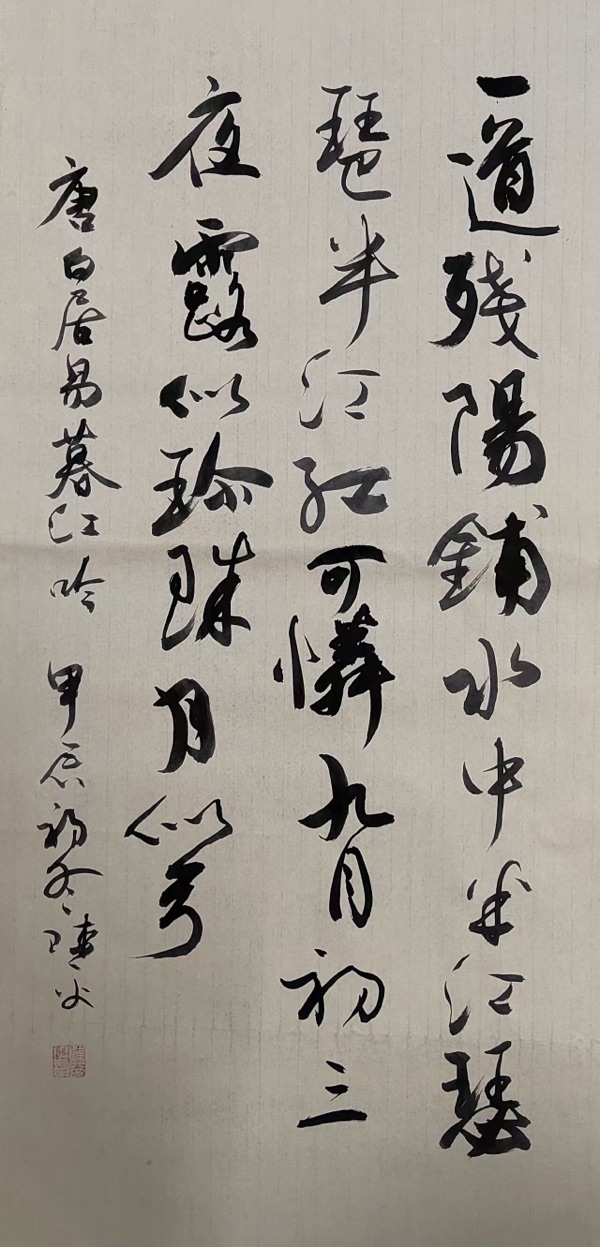 一道残陽鋪水中半江瑟
琶半江紅可憐九月初三
夜露似珍珠月似弓
唐白居易暮江吟 甲辰初冬